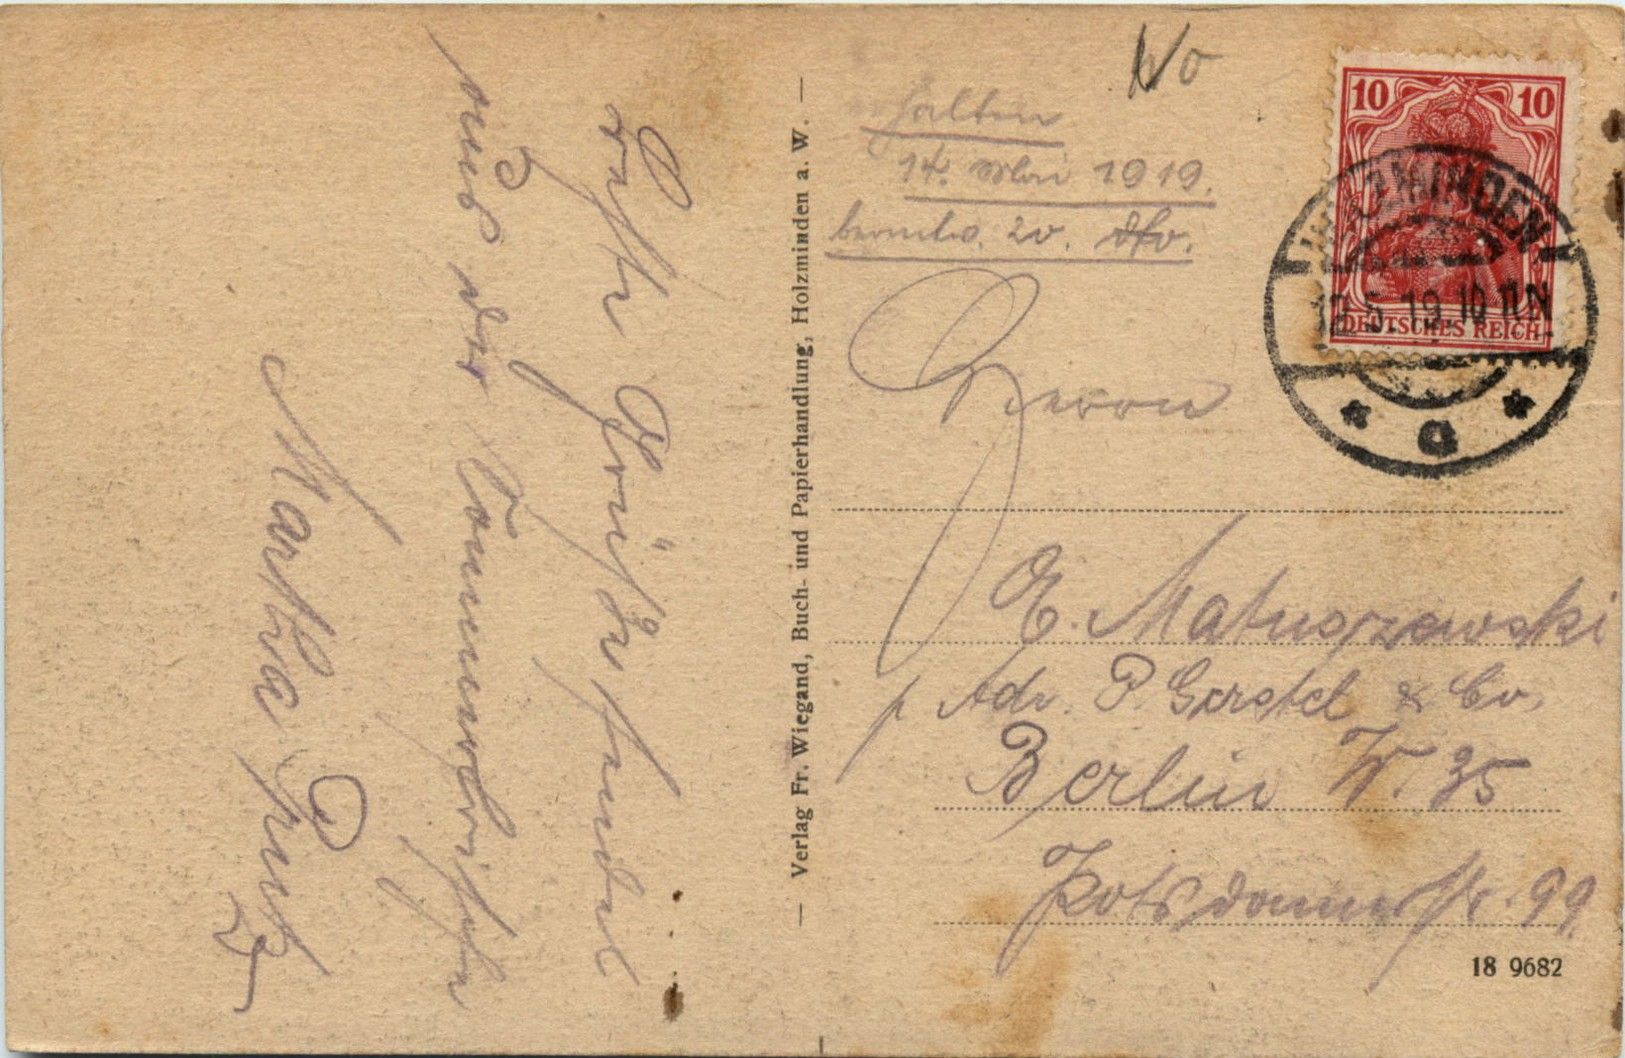 beste Grüße sendet
aus der Sommerfrische
Martha Putz
Verlag Fr. Wiegand, Buch- und Papierhandlung, Holzminden a. W.
erhalten
14. Mai 1919.
beantw. 20. dto.
10 10
DEUTSCHES REICH
HOLZMINDEN
12.5.19.10-11 N
* a *
Herrn
E. Matuszewski
p Adr. P. Gerstel & Co.
Berlin W. 35
Potsdamerstr. 99.
18 9682